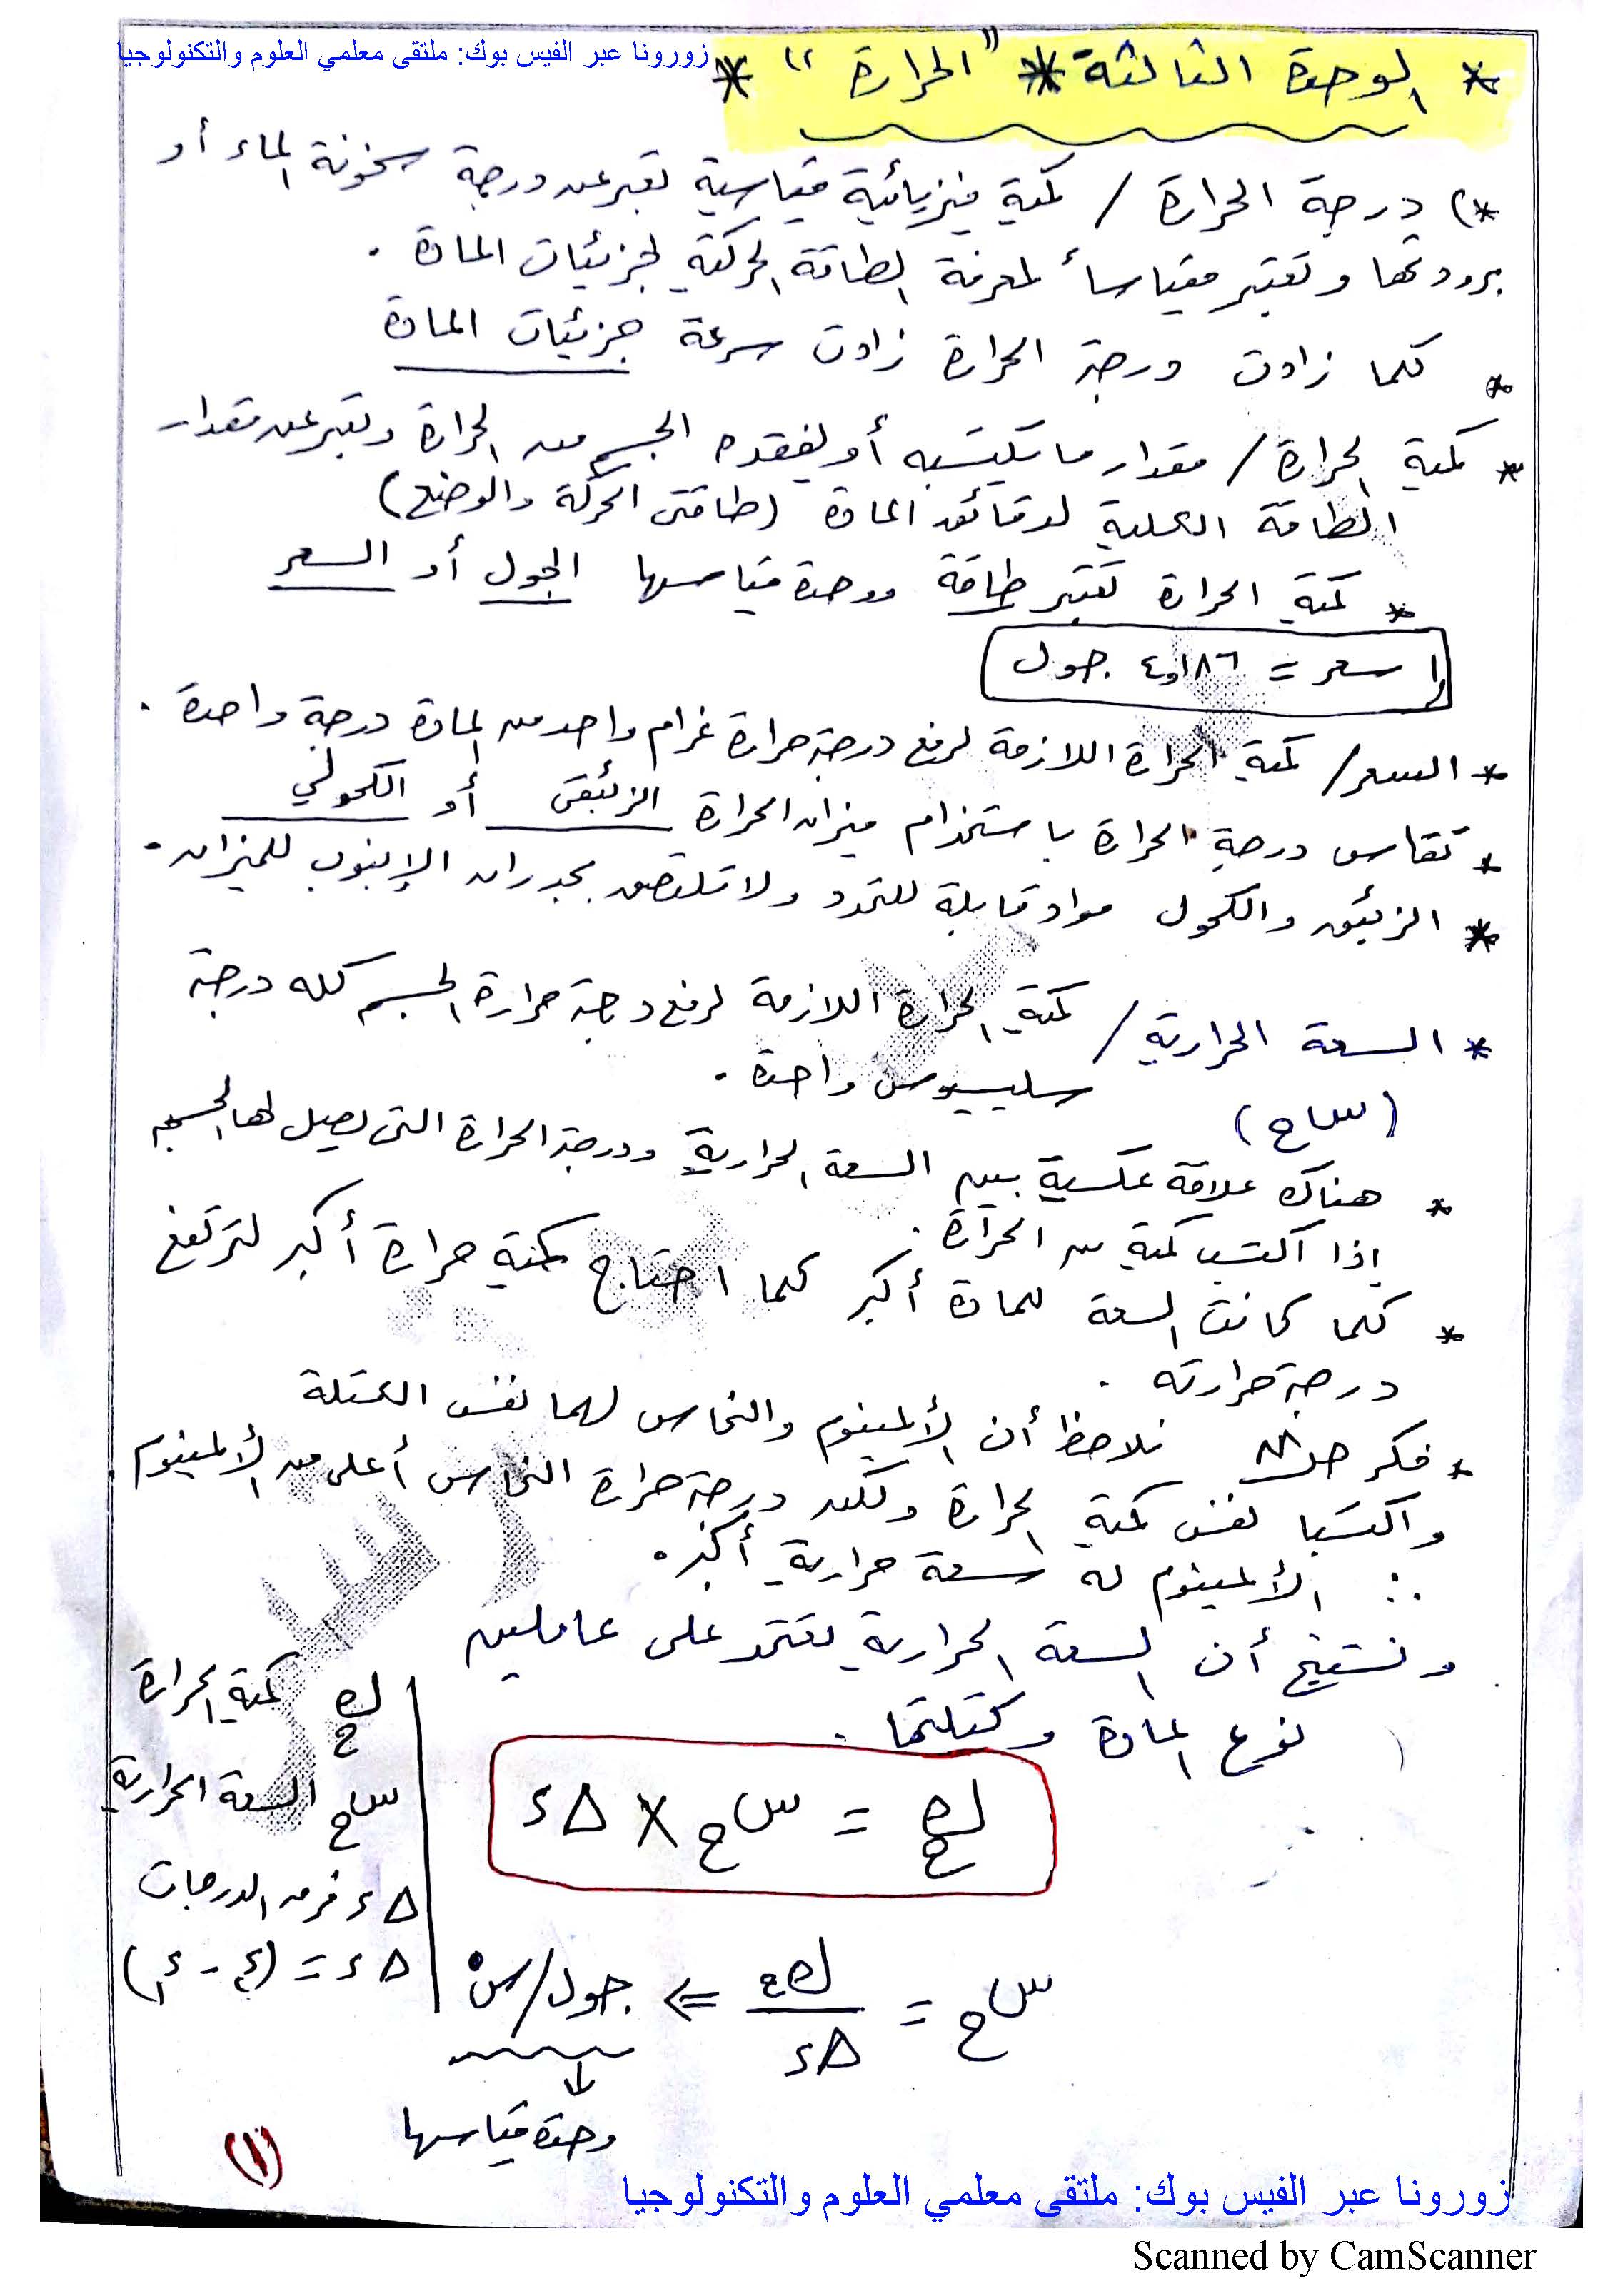 زورونا عبر الفيس بوك: ملتقى معلمي العلوم والتكنولوجيا
* الوحدة الثالثة * "الحرارة" *
*) درجة الحرارة / كمية فيزيائية قياسية تعبر عن درجة سخونة الماء أو
برودتها وتعتبر مقياساً لمعرفة الطاقة الحركية لجزيئات المادة .
* كلما زادت درجة الحرارة زادت سرعة جزيئات المادة
* كمية الحرارة / مقدار ما يكتسبه أو يفقده الجسم من الحرارة وتعبر عن مقدار
الطاقة الكلية لدقائق المادة (طاقتي الحركة والوضع)
* كمية الحرارة تعتبر طاقة ووحدة قياسها الجول أو السعر
١ سعر = ٤,١٨٦ جول
* السعر / كمية الحرارة اللازمة لرفع درجة حرارة غرام واحد من المادة درجة واحدة .
* تقاس درجة الحرارة باستخدام ميزان الحرارة الزئبقي أو الكحولي
* الزئبق والكحول مواد قابلة للتمدد ولا تلتصق بجدران الإنبوب للميزان .
* السعة الحرارية / كمية الحرارة اللازمة لرفع درجة حرارة الجسم كله درجة
سليسيوس واحدة .
(سح)
* هناك علاقة عكسية بين السعة الحرارية ودرجة الحرارة التي يصل لها الجسم
إذا اكتسب كمية من الحرارة .
* كلما كانت السعة للمادة أكبر كلما احتاج كمية حرارة أكبر لترتفع
درجة حرارته .
* فكر ص٨٨ نلاحظ أن الألمينوم والنحاس لهما نفس الكتلة
واكتسبا نفس كمية الحرارة ولكن درجة حرارة النحاس أعلى من الألمينوم
∴ الألمينوم له سعة حرارية أكبر .
ونستنتج أن السعة الحرارية يعتمد على عاملين
نوع المادة وكتلتها .
كح = سح × Δد
كح كمية الحرارة
سح السعة الحرارية
Δد فرق الدرجات
Δد = (د٢ - د١)
سح = كح / Δد ⇐ جول/س°
وحدة قياسها
(١)
زورونا عبر الفيس بوك: ملتقى معلمي العلوم والتكنولوجيا
Scanned by CamScanner